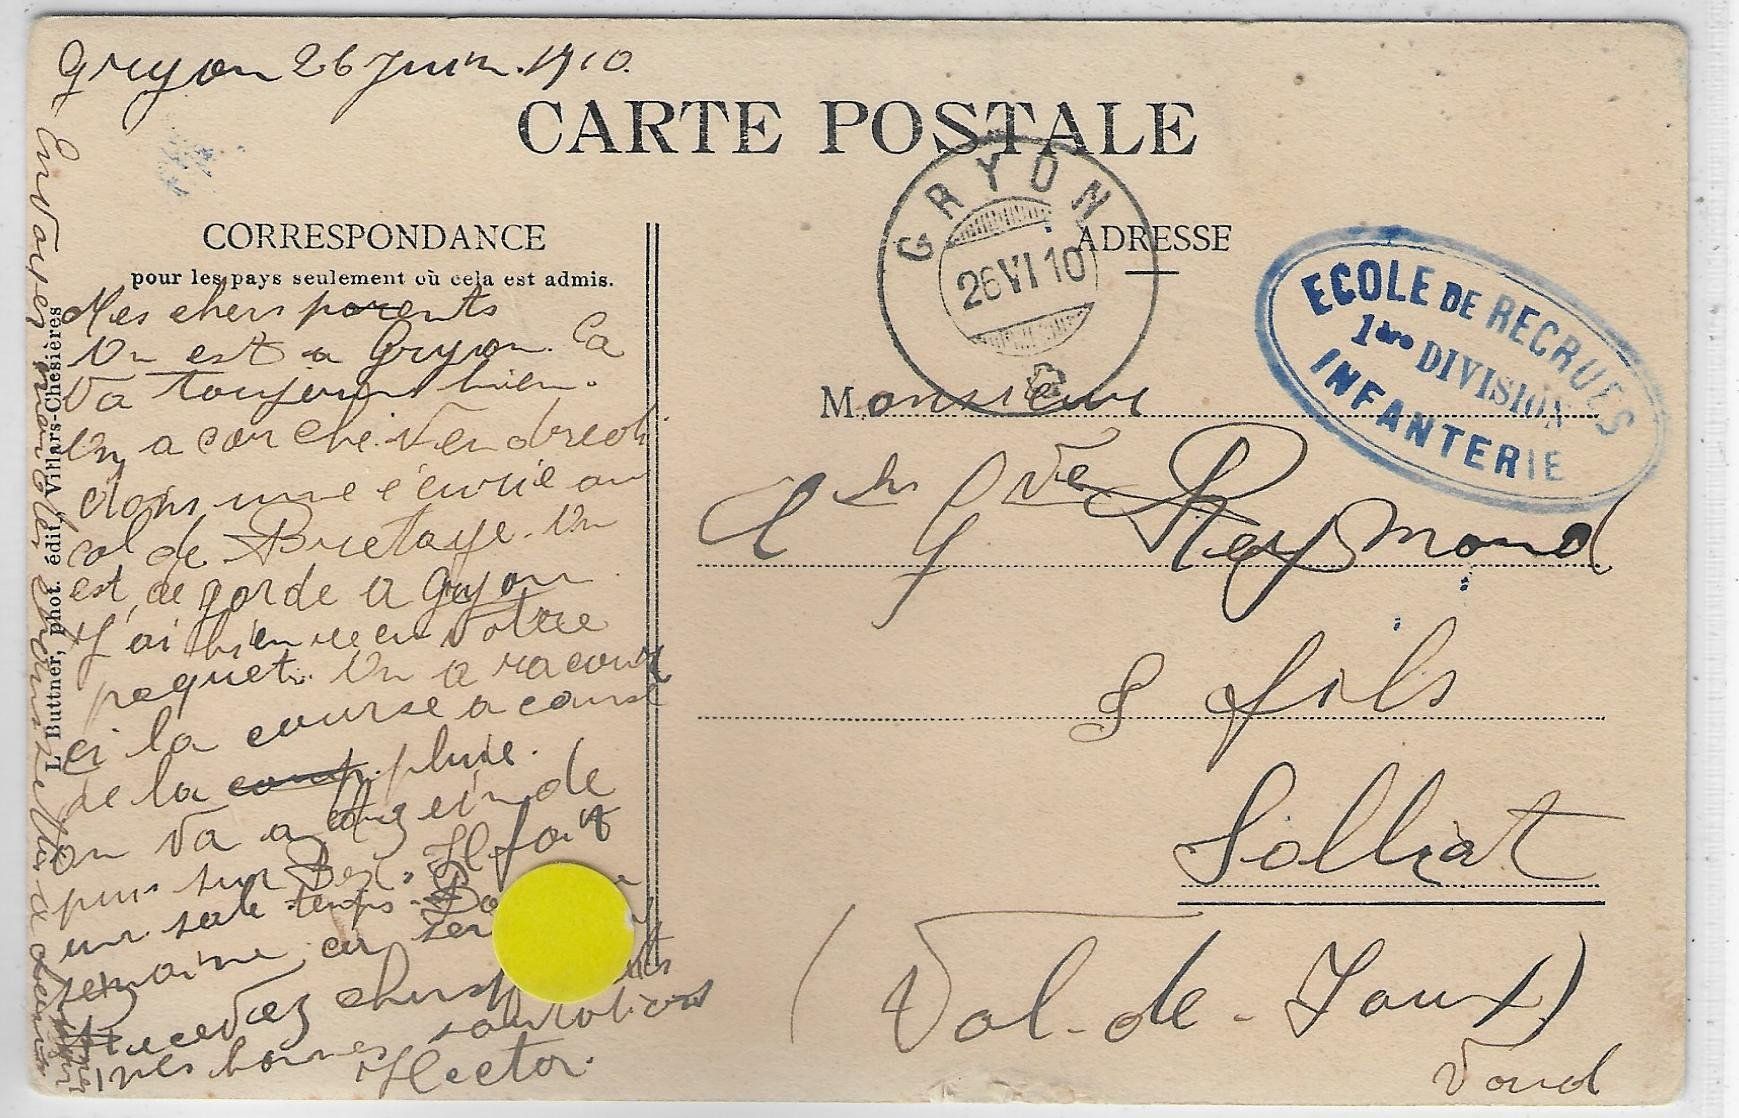 Gryon 26 Juin. 1910.
CARTE POSTALE
CORRESPONDANCE
pour les pays seulement où cela est admis.
ADRESSE
GRYON
26 VI 10
ECOLE DE RECRUES
1ère DIVISION
INFANTERIE
Mes chers parents
On est a Gryon. Ca
va toujours bien.
On a couché Vendredi
dans une écurie au
col de Bretaye. On
est de garde a Gryon
J'ai bien recu votre
paquet. On a racourci
ci la course a cause
de la pluie.
on va a
puis sur Bex. Il fait
un sale temps.
semaine
Recevez chers
mes bonnes salutations
Hector.
Envoyez
L. Buttner, phot. édit., Villars-Chesières
Monsieur
Ch Gve Reymond
& fils
Solliat
(Val-de-Joux)
Vaud